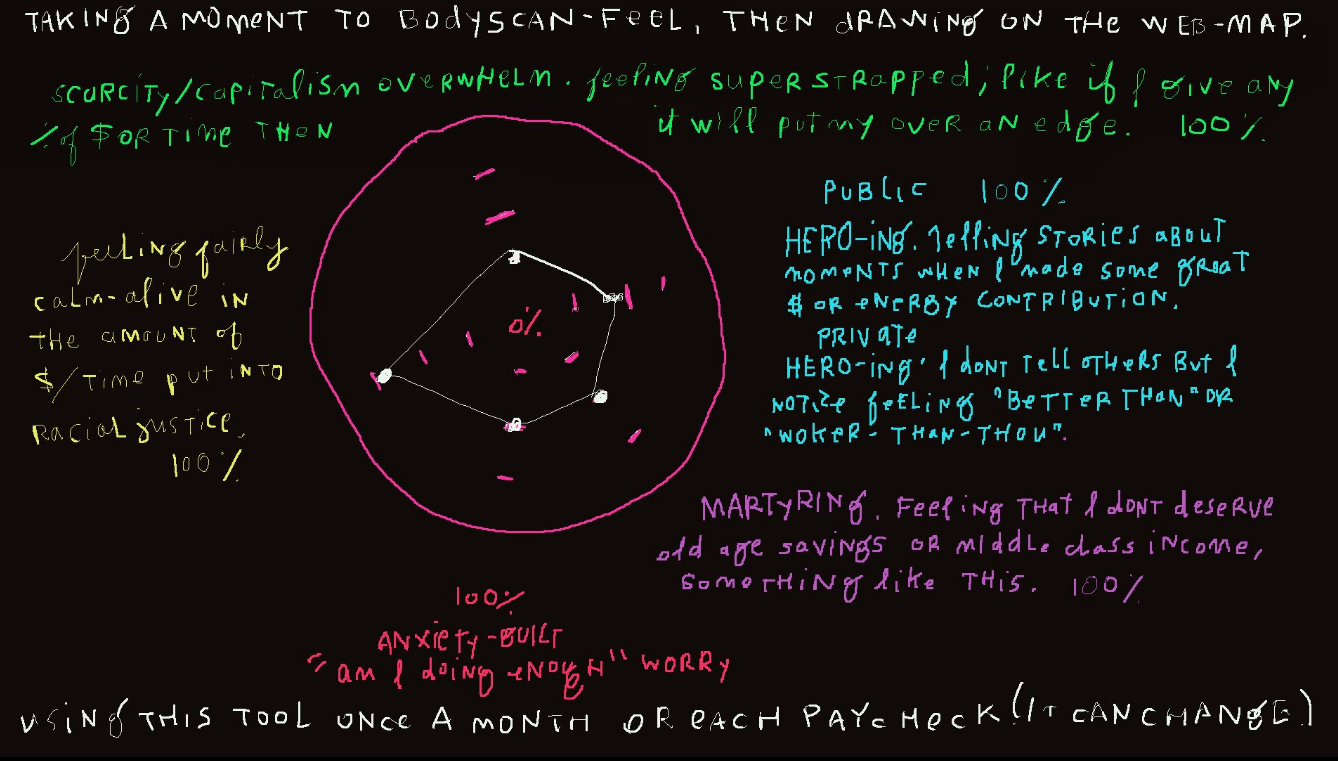 TAKING A MOMENT TO BODYSCAN-FEEL, THEN DRAWING ON THE WEB-MAP.
SCURCITY/CAPITALISM OVERWHELM. feeling SUPER STRAPPED, like if I give any
% of $ OR TIME THEN it will put my OVER AN edge. 100%
feeling fairly
calm-alive in
THE AMOUNT of
$/TIME put INTO
RACIAL justice.
100%
0%
PUBLIC 100%
HERO-iNg. Telling STORIES ABOUT
MOMENTS WHEN I made some great
$ OR ENERGY CONTRIBUTION.
PRIVATE
HERO-iNg. I dONT Tell OTHERS BUT I
NOTICE feeLiNg "BETTER THAN" OR
"WOKER-THAN-THOU".
MARTYRING. Feeling THAT I dONT deserve
old age savings OR middle class income,
SOMETHING like THIS. 100%
100%
ANXIETY-BUILT
"am I doing ENOUGH" WORRY
USING THIS TOOL ONCE A MONTH OR EACH PAYCHECK (IT CAN CHANGE)